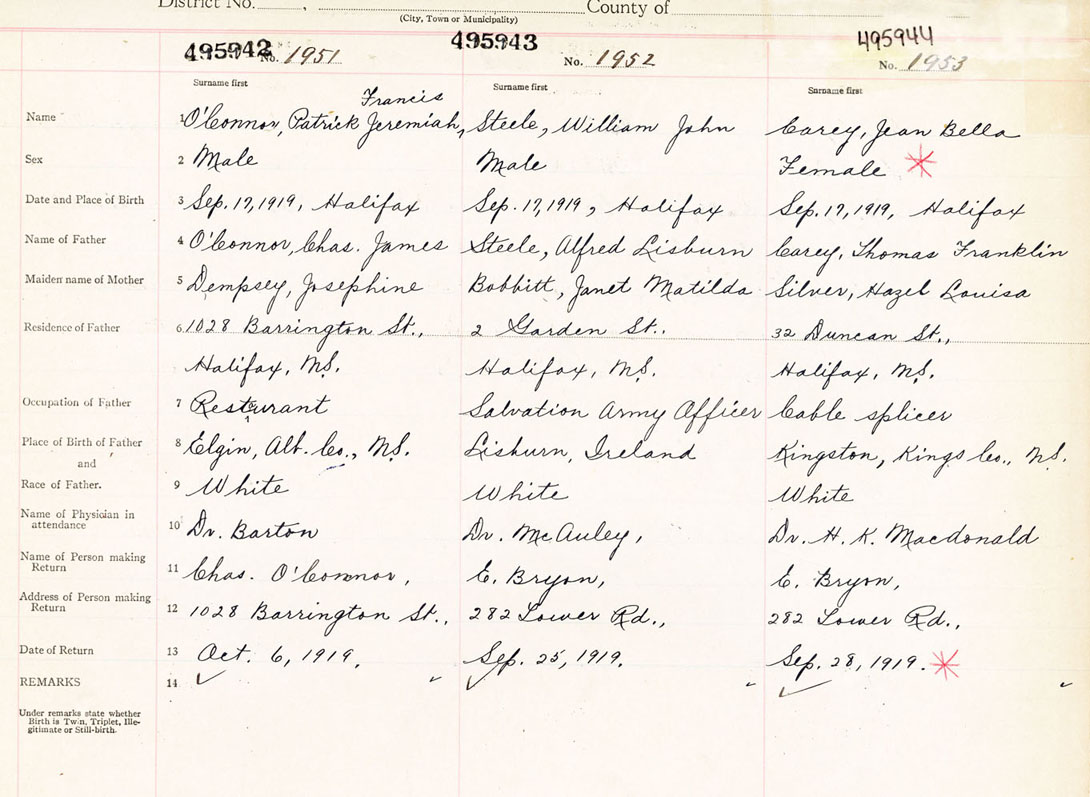 District No. , County of
(City, Town or Municipality)
495942 495943 495944
No. 1951 No. 1952 No. 1953
Surname first Surname first Surname first
Francis
Name 1 O'Connor, Patrick Jeremiah, Steele, William John Carey, Jean Bella
Sex 2 Male Male Female
Date and Place of Birth 3 Sep. 17, 1919, Halifax Sep. 17, 1919, Halifax Sep. 17, 1919, Halifax
Name of Father 4 O'Connor, Chas. James Steele, Alfred Lisburn Carey, Thomas Franklin
Maiden name of Mother 5 Dempsey, Josephine Bobbitt, Janet Matilda Silver, Hazel Louisa
Residence of Father 6 1028 Barrington St., 2 Garden St., 32 Duncan St.,
Halifax, N.S. Halifax, N.S. Halifax, N.S.
Occupation of Father 7 Restaurant Salvation Army Officer Cable splicer
Place of Birth of Father 8 Elgin, Alb. Co., N.S. Lisburn, Ireland Kingston, Kings Co., N.S.
and
Race of Father. 9 White White White
Name of Physician in
attendance 10 Dr. Barton Dr. McAuley, Dr. H. K. Macdonald
Name of Person making
Return 11 Chas. O'Connor, E. Bryon, E. Bryon,
Address of Person making
Return 12 1028 Barrington St., 282 Lower Rd., 282 Lower Rd.,
Date of Return 13 Oct. 6, 1919. Sep. 25, 1919. Sep. 28, 1919.
REMARKS 14
Under remarks state whether
Birth is Twin, Triplet, Ille-
gitimate or Still-birth.